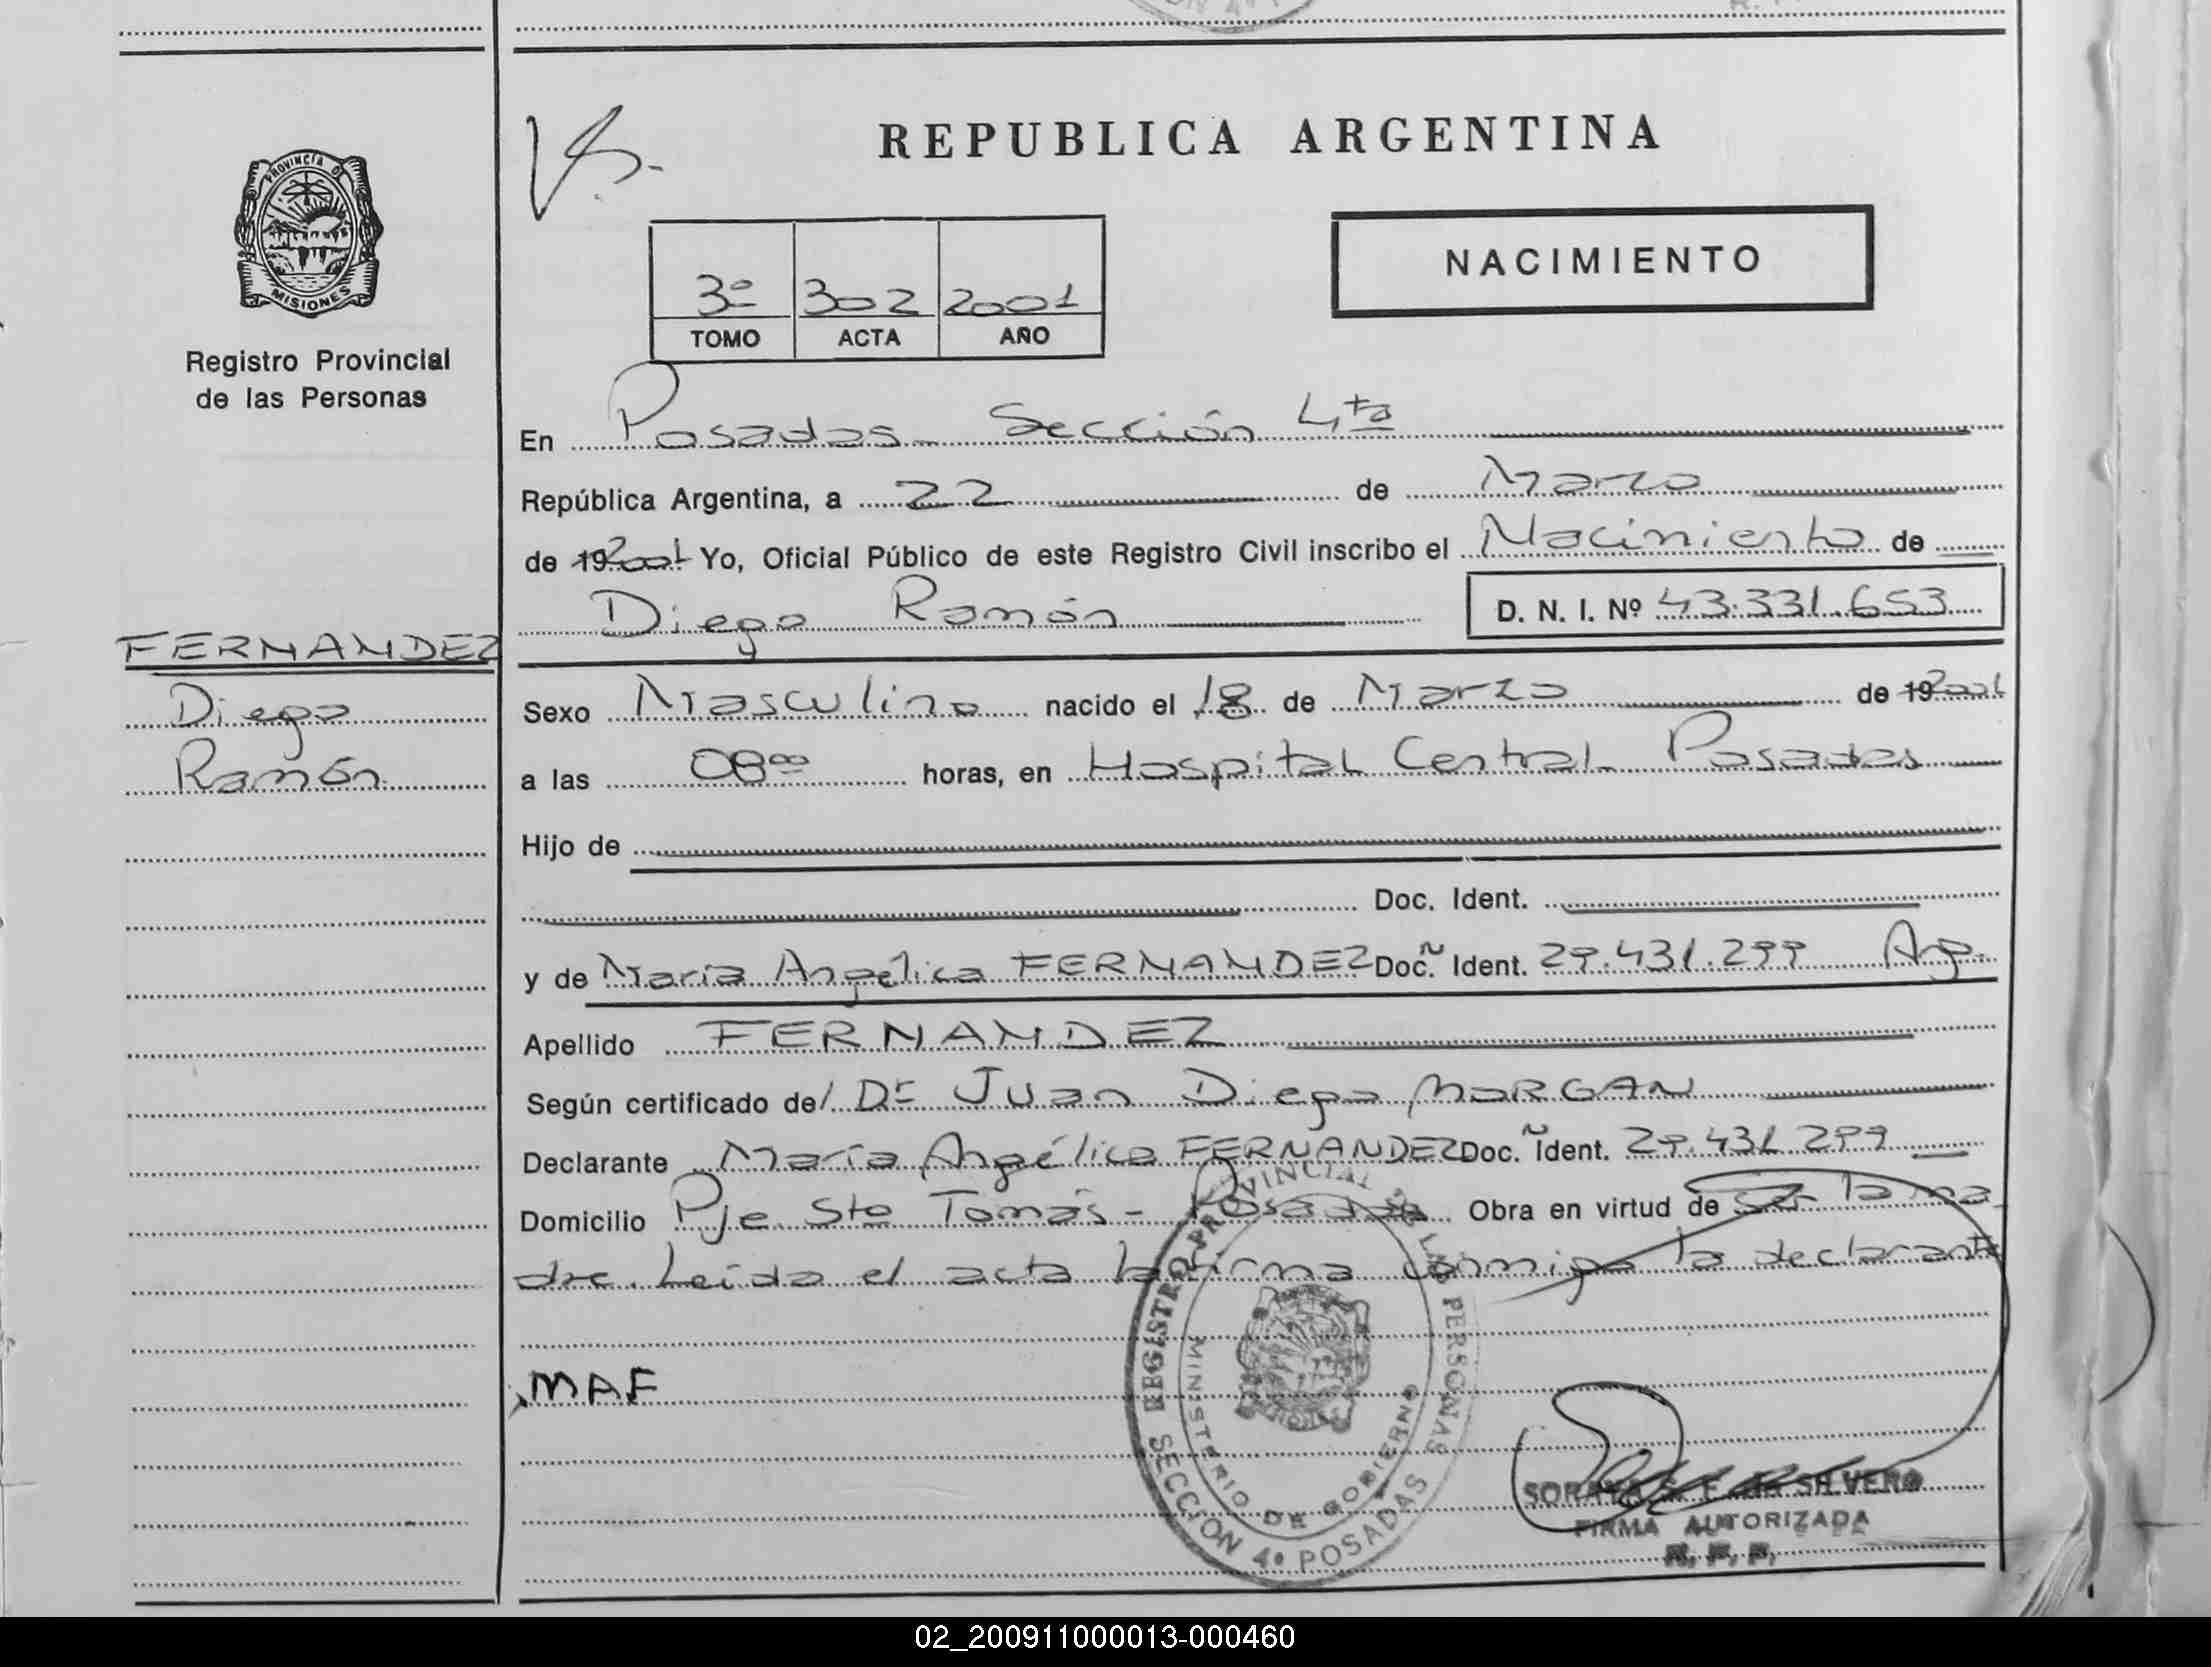 REPUBLICA ARGENTINA
PROVINCIA DE MISIONES
Registro Provincial
de las Personas
NACIMIENTO
3º 302 2001
TOMO ACTA AÑO
En Posadas - Sección 4ta
República Argentina, a 22 de Marzo
de 19 2001 Yo, Oficial Público de este Registro Civil inscribo el Nacimiento de
Diego Ramón D. N. I. Nº 43.331.653
FERNANDEZ
Diego
Ramón.
Sexo Masculino nacido el 18 de Marzo de 19 2001
a las 08⁰⁰ horas, en Hospital Central Posadas
Hijo de
Doc. Ident.
y de María Angélica FERNANDEZ Doc. Ident. 29.431.299 Arg.
Apellido FERNANDEZ
Según certificado de/ Dr Juan Diego MORGAN
Declarante María Angélica FERNANDEZ Doc. Ident. 29.431.299
Domicilio Pje Sto Tomás - Posadas Obra en virtud de ser la ma
dre. Leída el acta la firma conmigo la declarante
MAF
REGISTRO PROVINCIAL DE LAS PERSONAS
MINISTERIO DE GOBIERNO
SECCIÓN 4º POSADAS
SILVERO
FIRMA AUTORIZADA
02_200911000013-000460